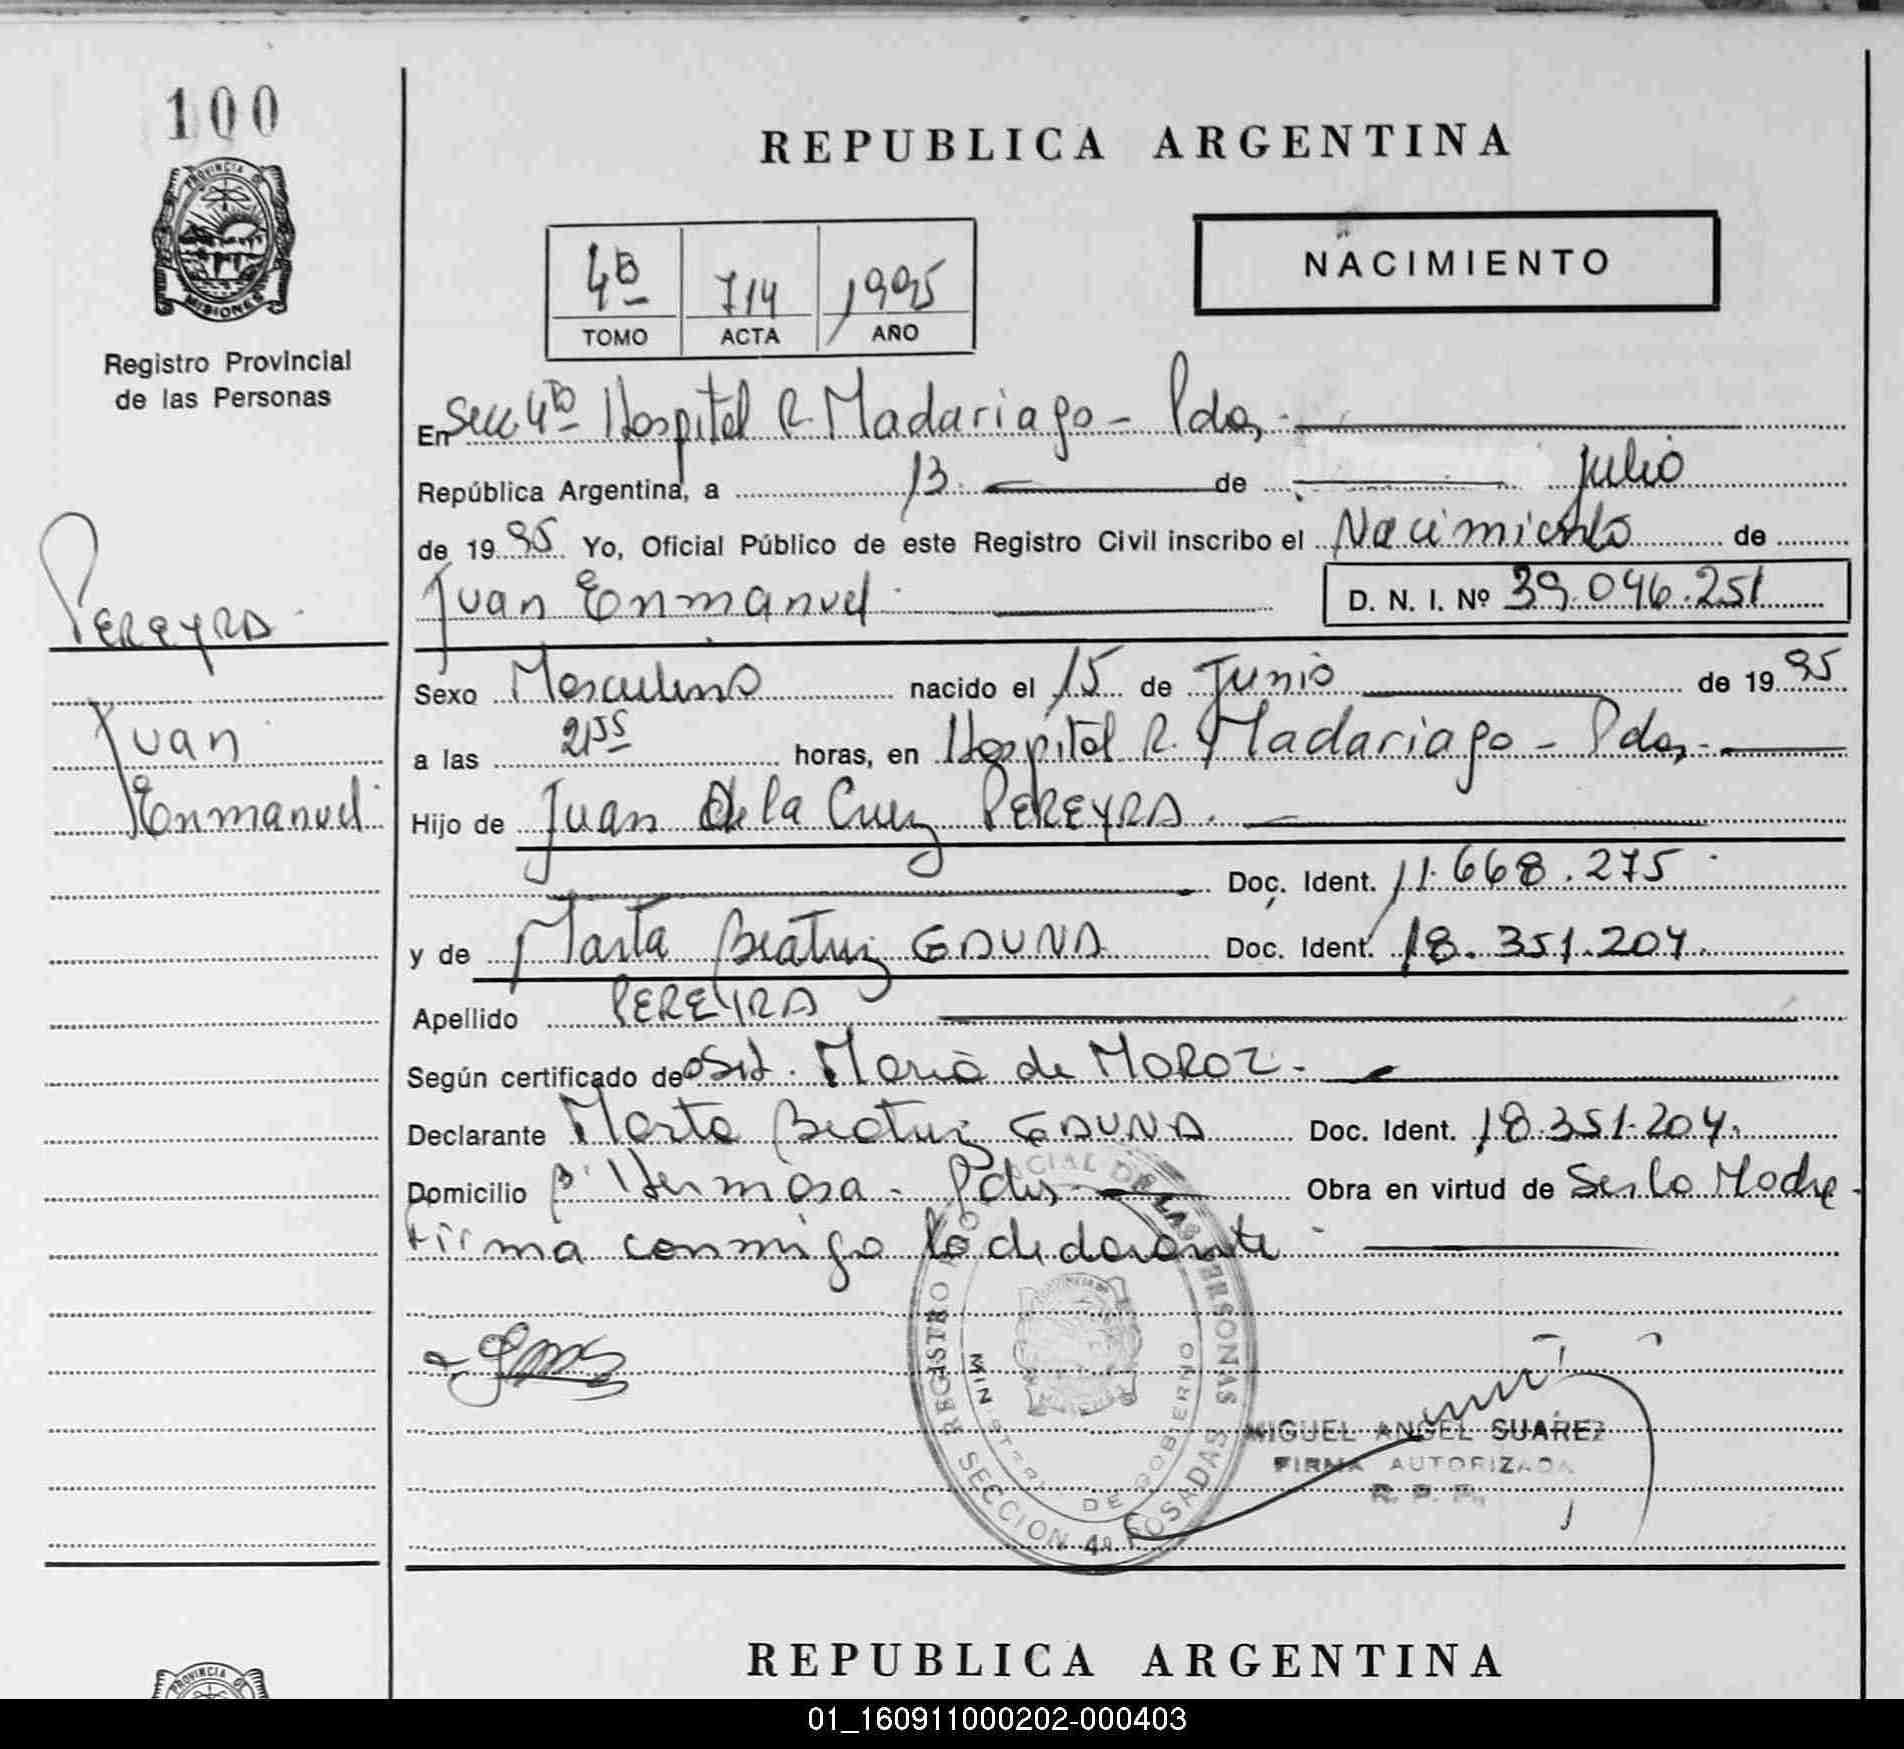 100
PROVINCIA DE
MISIONES
Registro Provincial
de las Personas
REPUBLICA ARGENTINA
NACIMIENTO
4ª 714 1995
TOMO ACTA AÑO
En Secc. 4ª Hospital R. Madariaga - Pdas.
República Argentina, a 13 de julio
de 1995 Yo, Oficial Público de este Registro Civil inscribo el Nacimiento de
Juan Enmanuel D. N. I. Nº 39.046.251
PEREYRA
Juan
Enmanuel
Sexo Masculino nacido el 15 de Junio de 1995
a las 21 55 horas, en Hospital R. Madariaga - Pdas.
Hijo de Juan De la Cruz PEREYRA.
Doc. Ident. 11.668.275
y de Marta Beatriz GAUNA Doc. Ident. 18.351.204.
Apellido PEREYRA
Según certificado de Obst. María de MOROZ.
Declarante Marta Beatriz GAUNA Doc. Ident. 18.351.204.
Domicilio Bº Hermosa - Pdas. Obra en virtud de Ser la Madre.
Firma conmigo la declarante
REGISTRO PROVINCIAL DE LAS PERSONAS
MINISTERIO DE GOBIERNO
SECCION 4º POSADAS
MIGUEL ANGEL SUAREZ
FIRMA AUTORIZADA
R. P. P.
REPUBLICA ARGENTINA
PROVINCIA DE
01_160911000202-000403